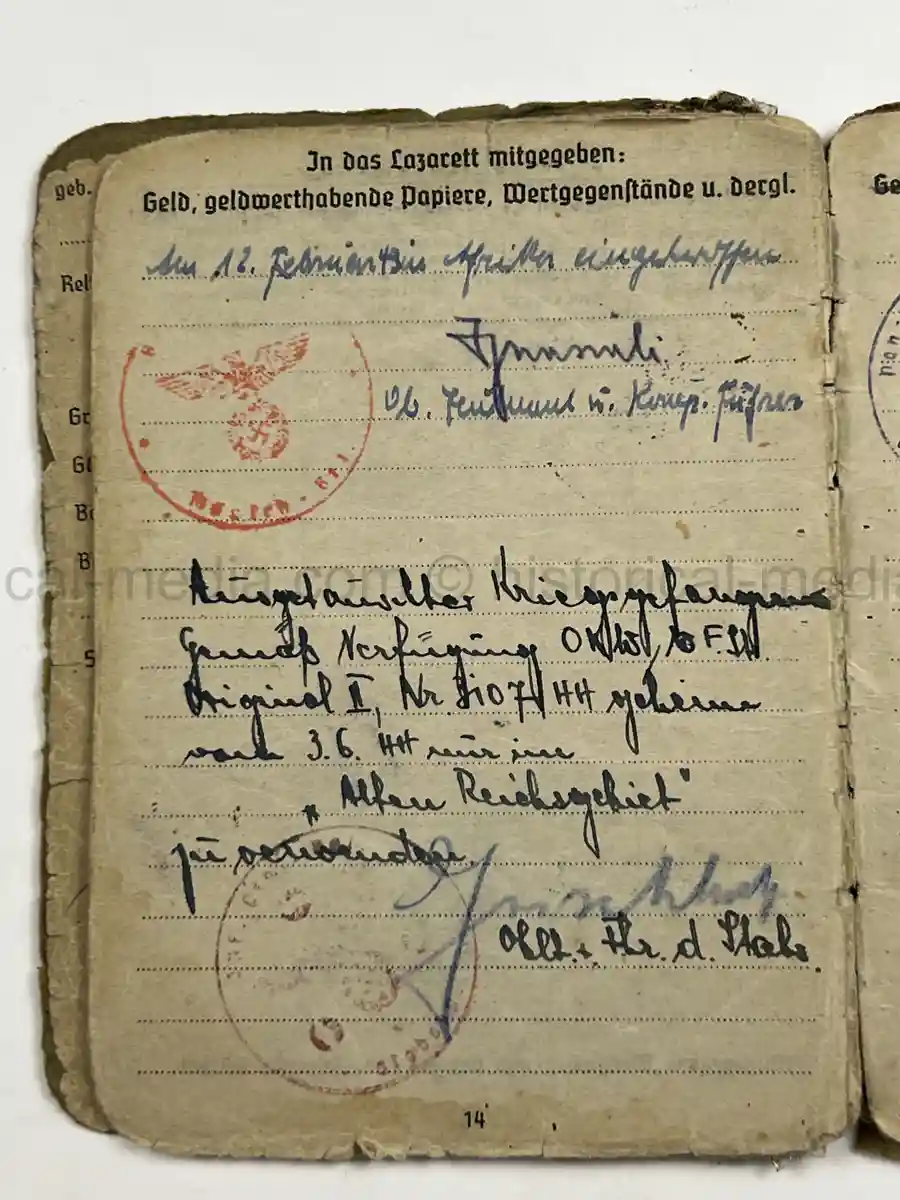 In das Lazarett mitgegeben:
Geld, geldwerthabende Papiere, Wertgegenstände u. dergl.
Am 12. Februar 43 in Afrika eingetroffen
Ob. Leutnant u. Komp. Führer
Ausgetauschter Kriegsgefangener
Gemäß Verfügung OKW,
Original II, Nr. 44 geheim
vom 3.6.44 nur im
„Alten Reichsgebiet"
zu verwenden.
Oblt. u. Fhr. d. Stabs.
14
geb.
Rel
Gr
Gl
B
S
Ge
cal-media.com © historical-media